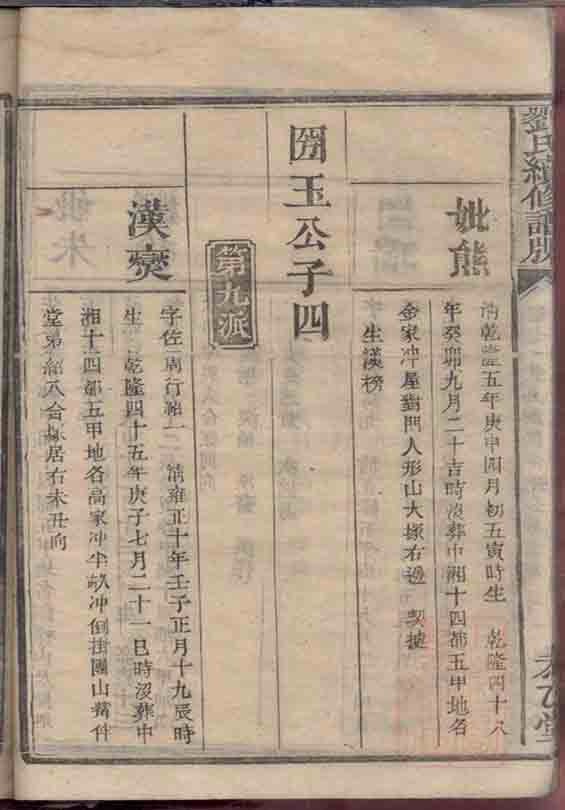 劉氏續修譜版
妣熊
清乾隆五年庚申四月初五寅時生 乾隆四十八
年癸卯九月二十吉時沒葬中湘十四都五甲地名
金家冲屋對門人形山大塚右邊 契據
生漢榜
玉公子四
第九派
漢奭
字佐周行紹一 清雍正十年壬子正月十九辰時
生 乾隆四十五年庚子七月二十一巳時沒葬中
湘十四都五甲地名高家冲 冲倒掛團山嘴仵
堂弟紹八合塚居右未丑向